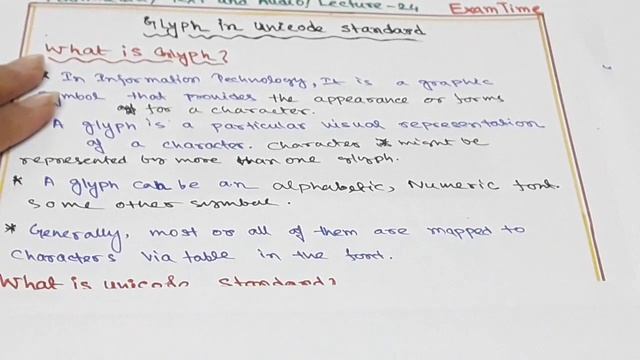 Text and Audio/ Lecture-24 ExamTime
Glyph in unicode standard
What is Glyph?
* In Information Technology, It is a graphic
symbol that provides the appearance or forms
for a character.
A glyph is a particular visual representation
of a character. Character might be
represented by more than one glyph.
* A glyph can be an alphabetic, Numeric font.
Some other symbol.
* Generally, most or all of them are mapped to
characters via table in the font.
What is unicode standard?